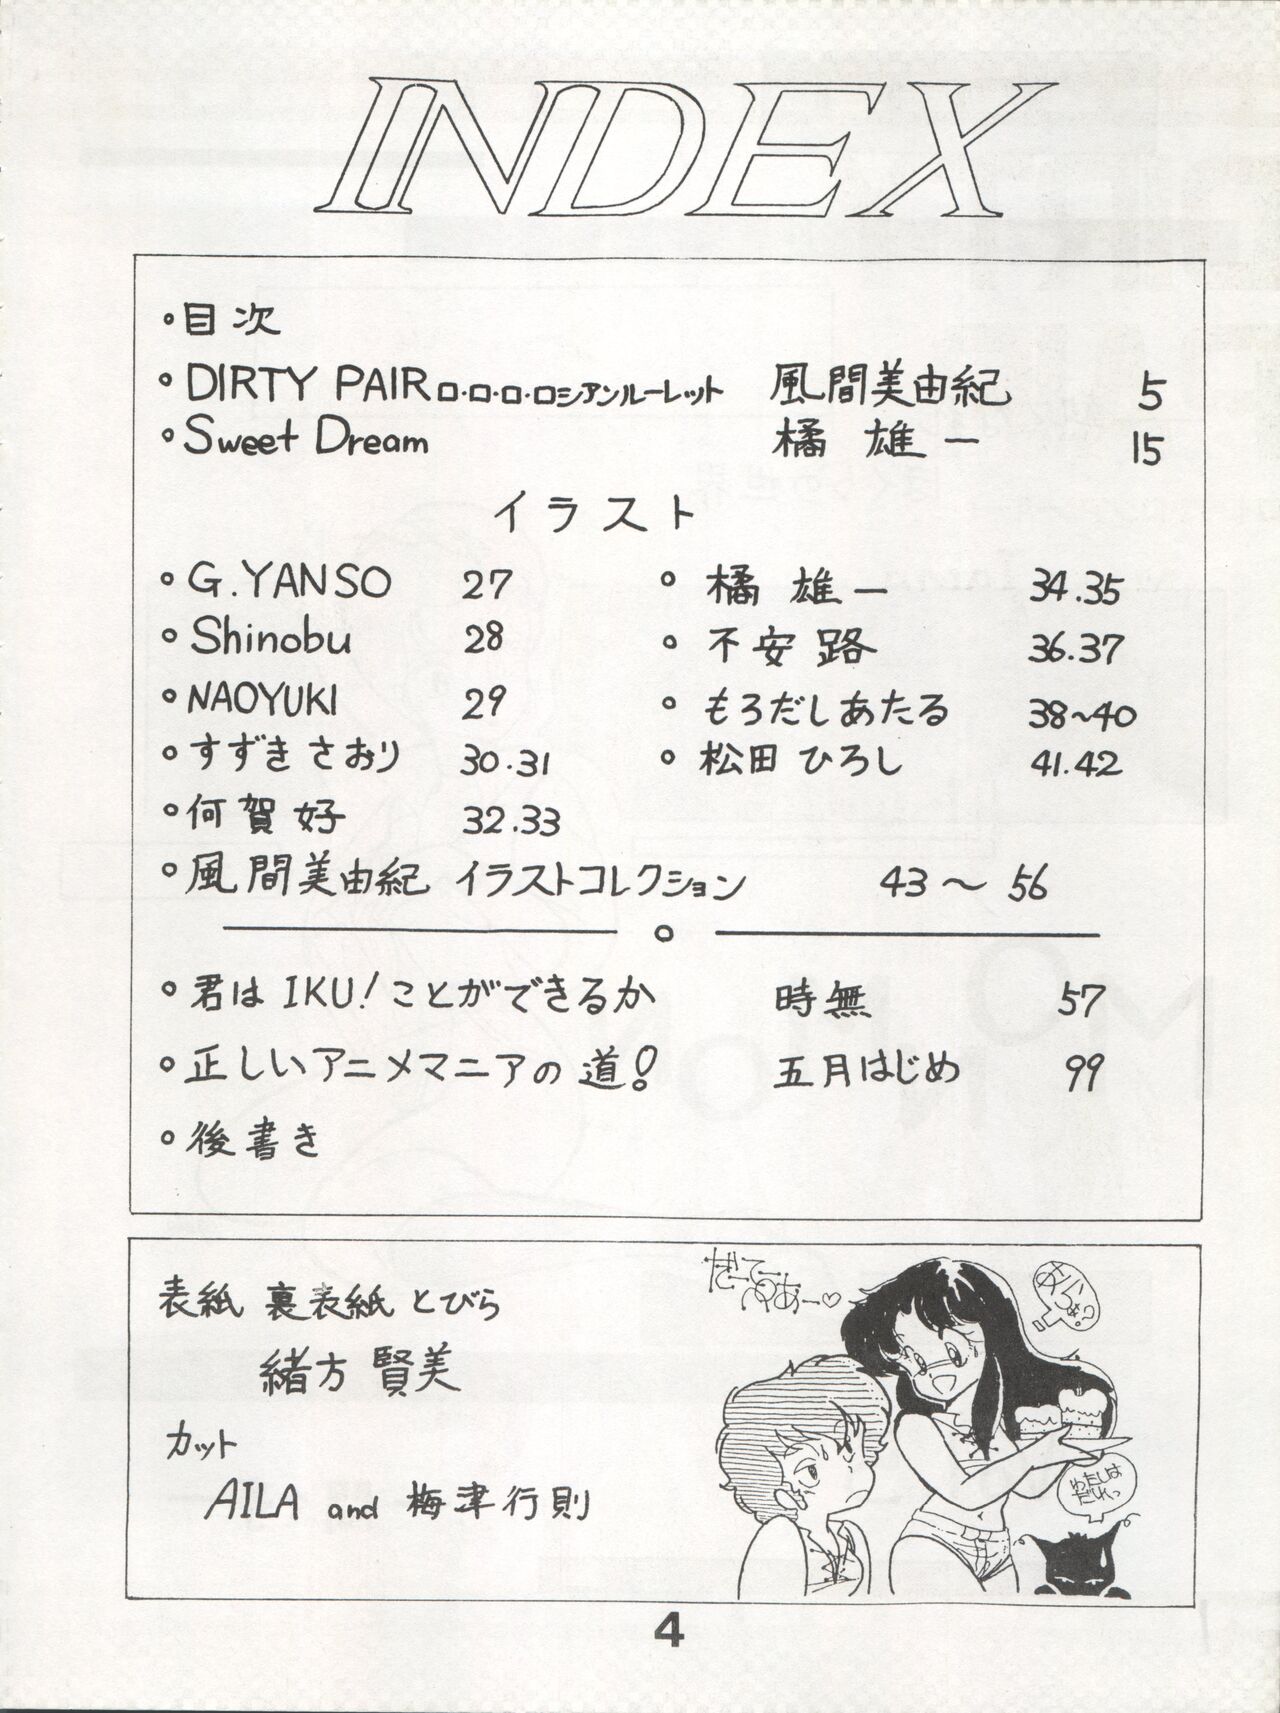 INDEX
•目次
•DIRTY PAIRロ・ロ・ロ・ロシアンルーレット 風間美由紀 5
•Sweet Dream 橘 雄一 15
イラスト
•G.YANSO 27
•Shinobu 28
•NAOYUKI 29
•すずきさおり 30.31
•何賀好 32.33
•橘 雄一 34.35
•不安路 36.37
•もろだしあたる 38~40
•松田ひろし 41.42
•風間美由紀 イラストコレクション 43~56
•君はIKU!ことができるか 時無 57
•正しいアニメマニアの道! 五月はじめ 99
•後書き
表紙 裏表紙 とびら
緒方 賢美
カット
AILA and 梅津行則
わたしは
だれっ
4